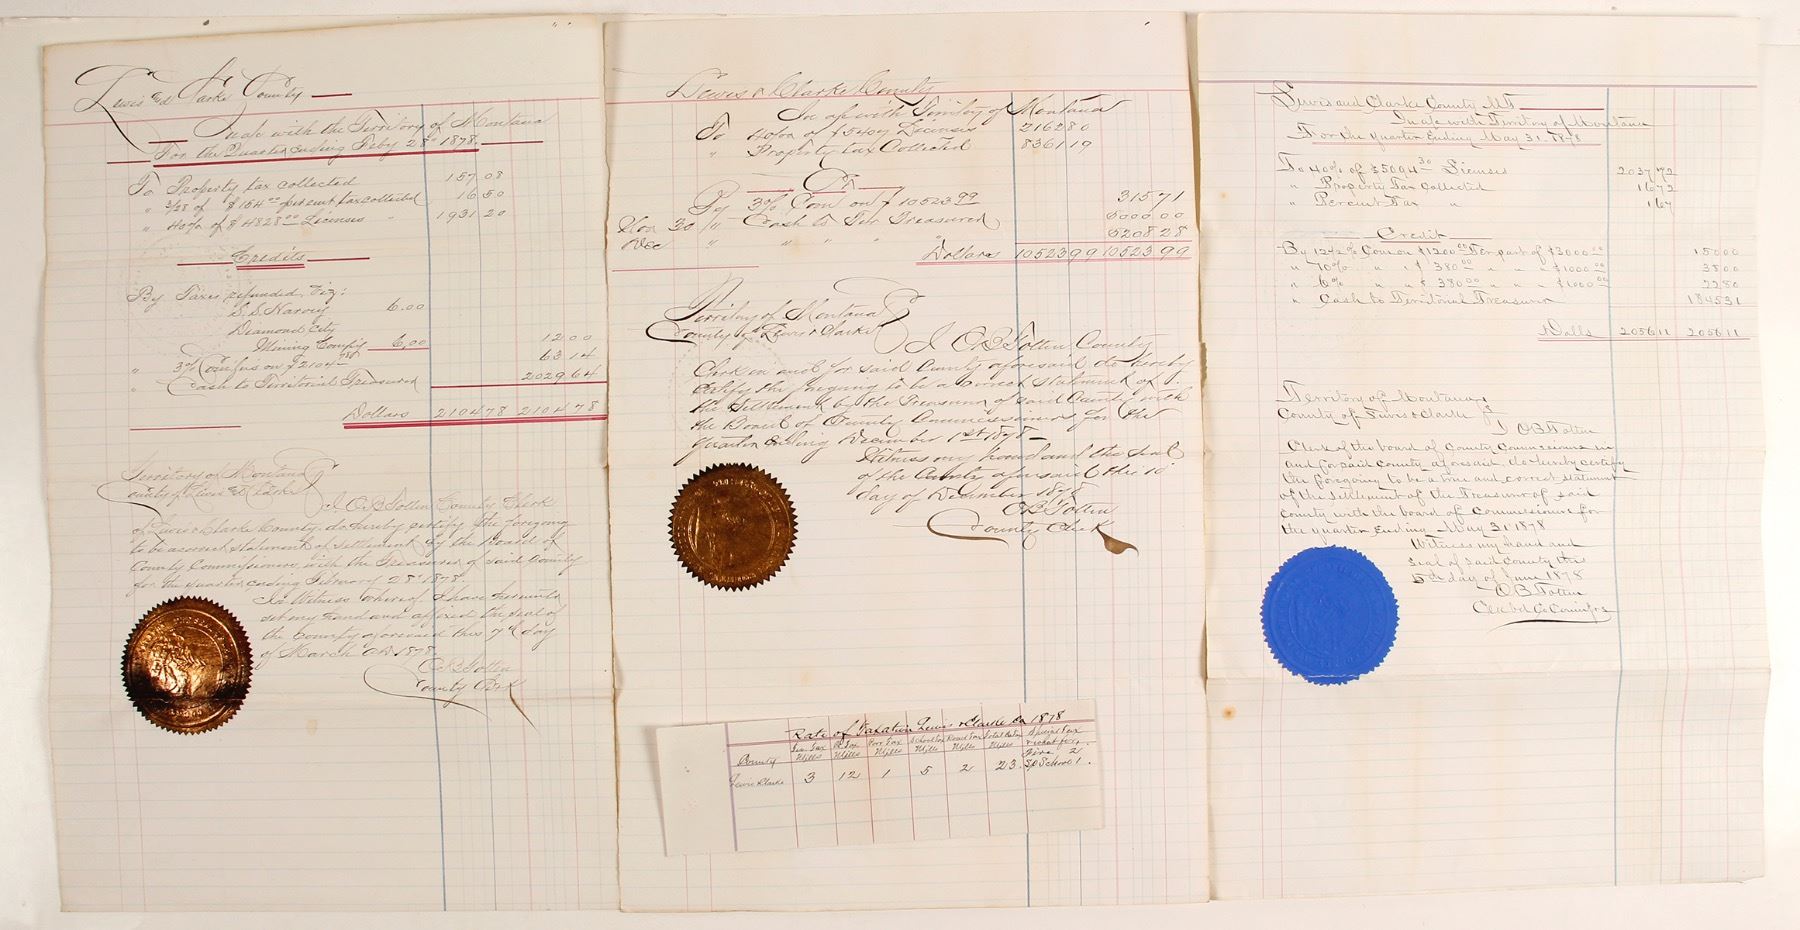 Lewis and Clarke County
In a/c with the Territory of Montana
For the Quarter ending Feby 28th 1878.
To Property tax collected 157.08
" 3/28 of $154.00 per cent tax collected 16.50
" 40% of $4828.00 Licenses " 1931.20
Credits
By Taxes refunded, Viz:
S.S. Harvey 6.00
Diamond City
Mining Comp'y 6.00 12.00
" 3% Com on $2104.78 63.14
" Cash to Territorial Treasurer 2029.64
Dollars 2104.78 2104.78
Territory of Montana
County of Lewis & Clarke
I O B Totten County Clerk
of Lewis & Clarke County, do hereby certify the foregoing
to be a correct statement of settlement by the Board of
County Commissioners with the Treasurer of said County
for the quarter ending February 28th 1878.
In Witness whereof I have hereunto
set my hand and affixed the seal of
the County aforesaid this 7th day
of March A.D. 1878.
O B Totten
County Clerk
Lewis & Clarke County
In a/c with Territory of Montana
To 40% of $5407 Licenses 2162 80
" Property tax Collected 8361 19
Cr
By 3% Com on $10523.99 315.71
Nov 30 " Cash to Ter Treasurer 5000.00
Dec " " " " 5208 28
Dollars 10523 99 10523 99
Territory of Montana
County of Lewis & Clarke
I O B Totten County
Clerk in and for said County aforesaid do hereby
certify the foregoing to be a correct statement of
the Settlement by the Treasurer of said County with
the Board of County Commissioners for the
Quarter Ending December 1st 1878 -
Witness my hand and the seal
of the County aforesaid this 10
day of December 1878
O B Totten
County Clerk
Rate of Taxation Lewis & Clarke Co 1878
County Ter Tax Mills Co Tax Mills Poor Tax Mills School Tax Mills Road Tax Mills Total Rate Mills Special Tax
Fire 2
Lewis & Clarke 3 12 1 5 2 23. Sp School 1.
Lewis and Clarke County M.T.
In a/c with Territory of Montana
For the quarter Ending May 31. 1878
To 40% of $5094.30 Licenses 2037 72
" Property Tax Collected 16 72
" Percent Tax " 1 67
Credit
By 12½% Com on $1200.00 Ter part of $3000.00 150 00
" 10% " " $380.00 " " " $1000.00 38 00
" 6% " " $380.00 " " " $1000.00 22 80
" Cash to Territorial Treasurer 1845 31
Dolls 2056 11 2056 11
Territory of Montana
County of Lewis & Clarke
I O B Totten
Clerk of the board of County Commissioners in
and for said County aforesaid, do hereby certify
the foregoing to be a true and correct statement
of the settlement of the Treasurer of said
County with the board of Commissioners for
the quarter Ending May 31 1878
Witness my hand and
seal of said County this
5th day of June 1878
O B Totten
Clk bd Co Commfrs